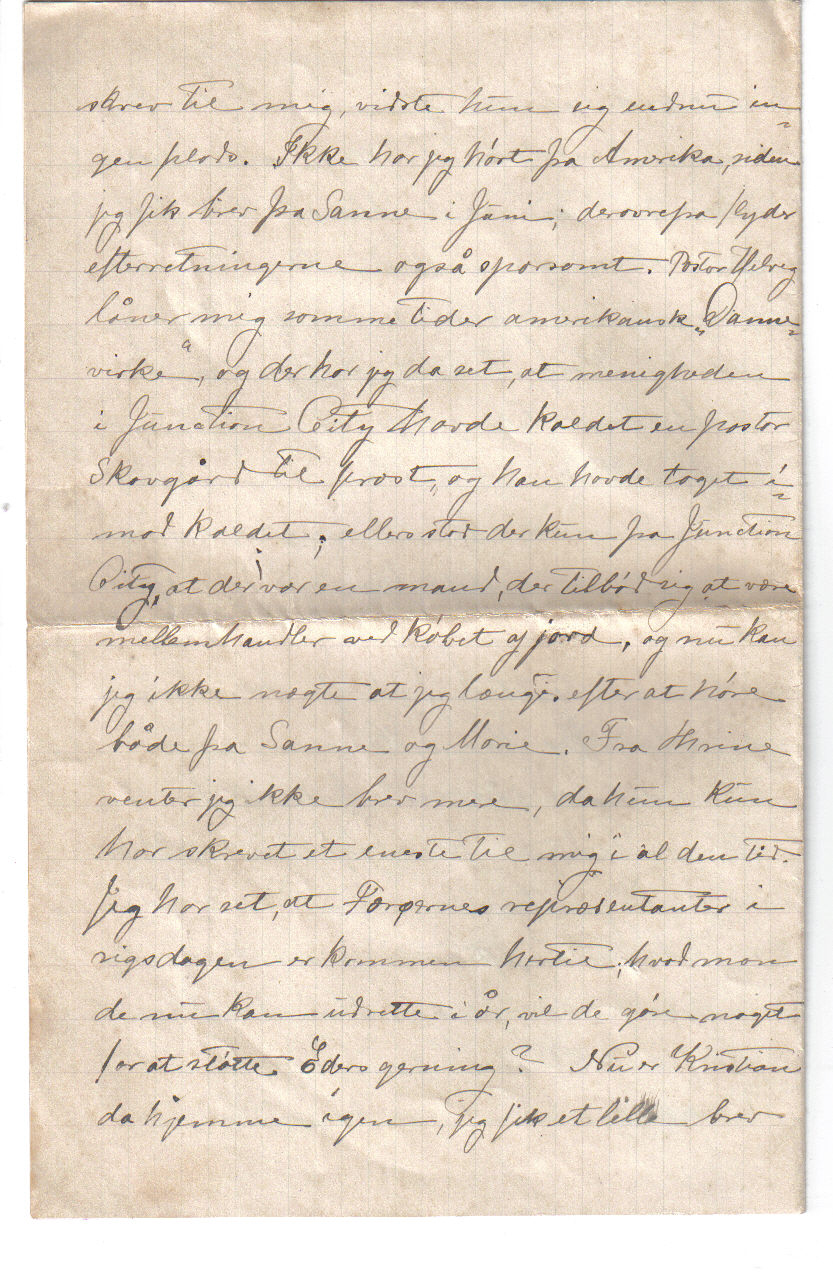 skrev til mig, vidste hun sig endnu in-
gen plads. Ikke har jeg hórt fra Amerika, siden
jeg fik brev fra Sanne i Juni; derovre fra lyder
efterretningerne også sparsomt. Pastor Helveg
låner mig somme tider amerikansk „Danne-
virke“, og der har jeg da set, at menigheden
i Junction City havde kaldet en pastor
Skovgård til præst, og han havde taget i-
mod kaldet; ellers stod der kun fra Junction
City, at der var en mand, der tilbód sig at være
mellemhandler ved kóbet af jord, og nu kan
jeg ikke nægte at jeg længes efter at hóre
både fra Sanne og Marie. Fra Thrine
venter jeg ikke brev mere, da hun kun
har skrevet et eneste til mig i al den tid.
Jeg har set, at Færøernes repræsentanter i
rigsdagen er kommen hertil, hvad mon
de nu kan udrette i år, vil de góre noget
for at stótte Eders gerning? Nu er Kristian
da hjemme igen, jeg fik et lille brev